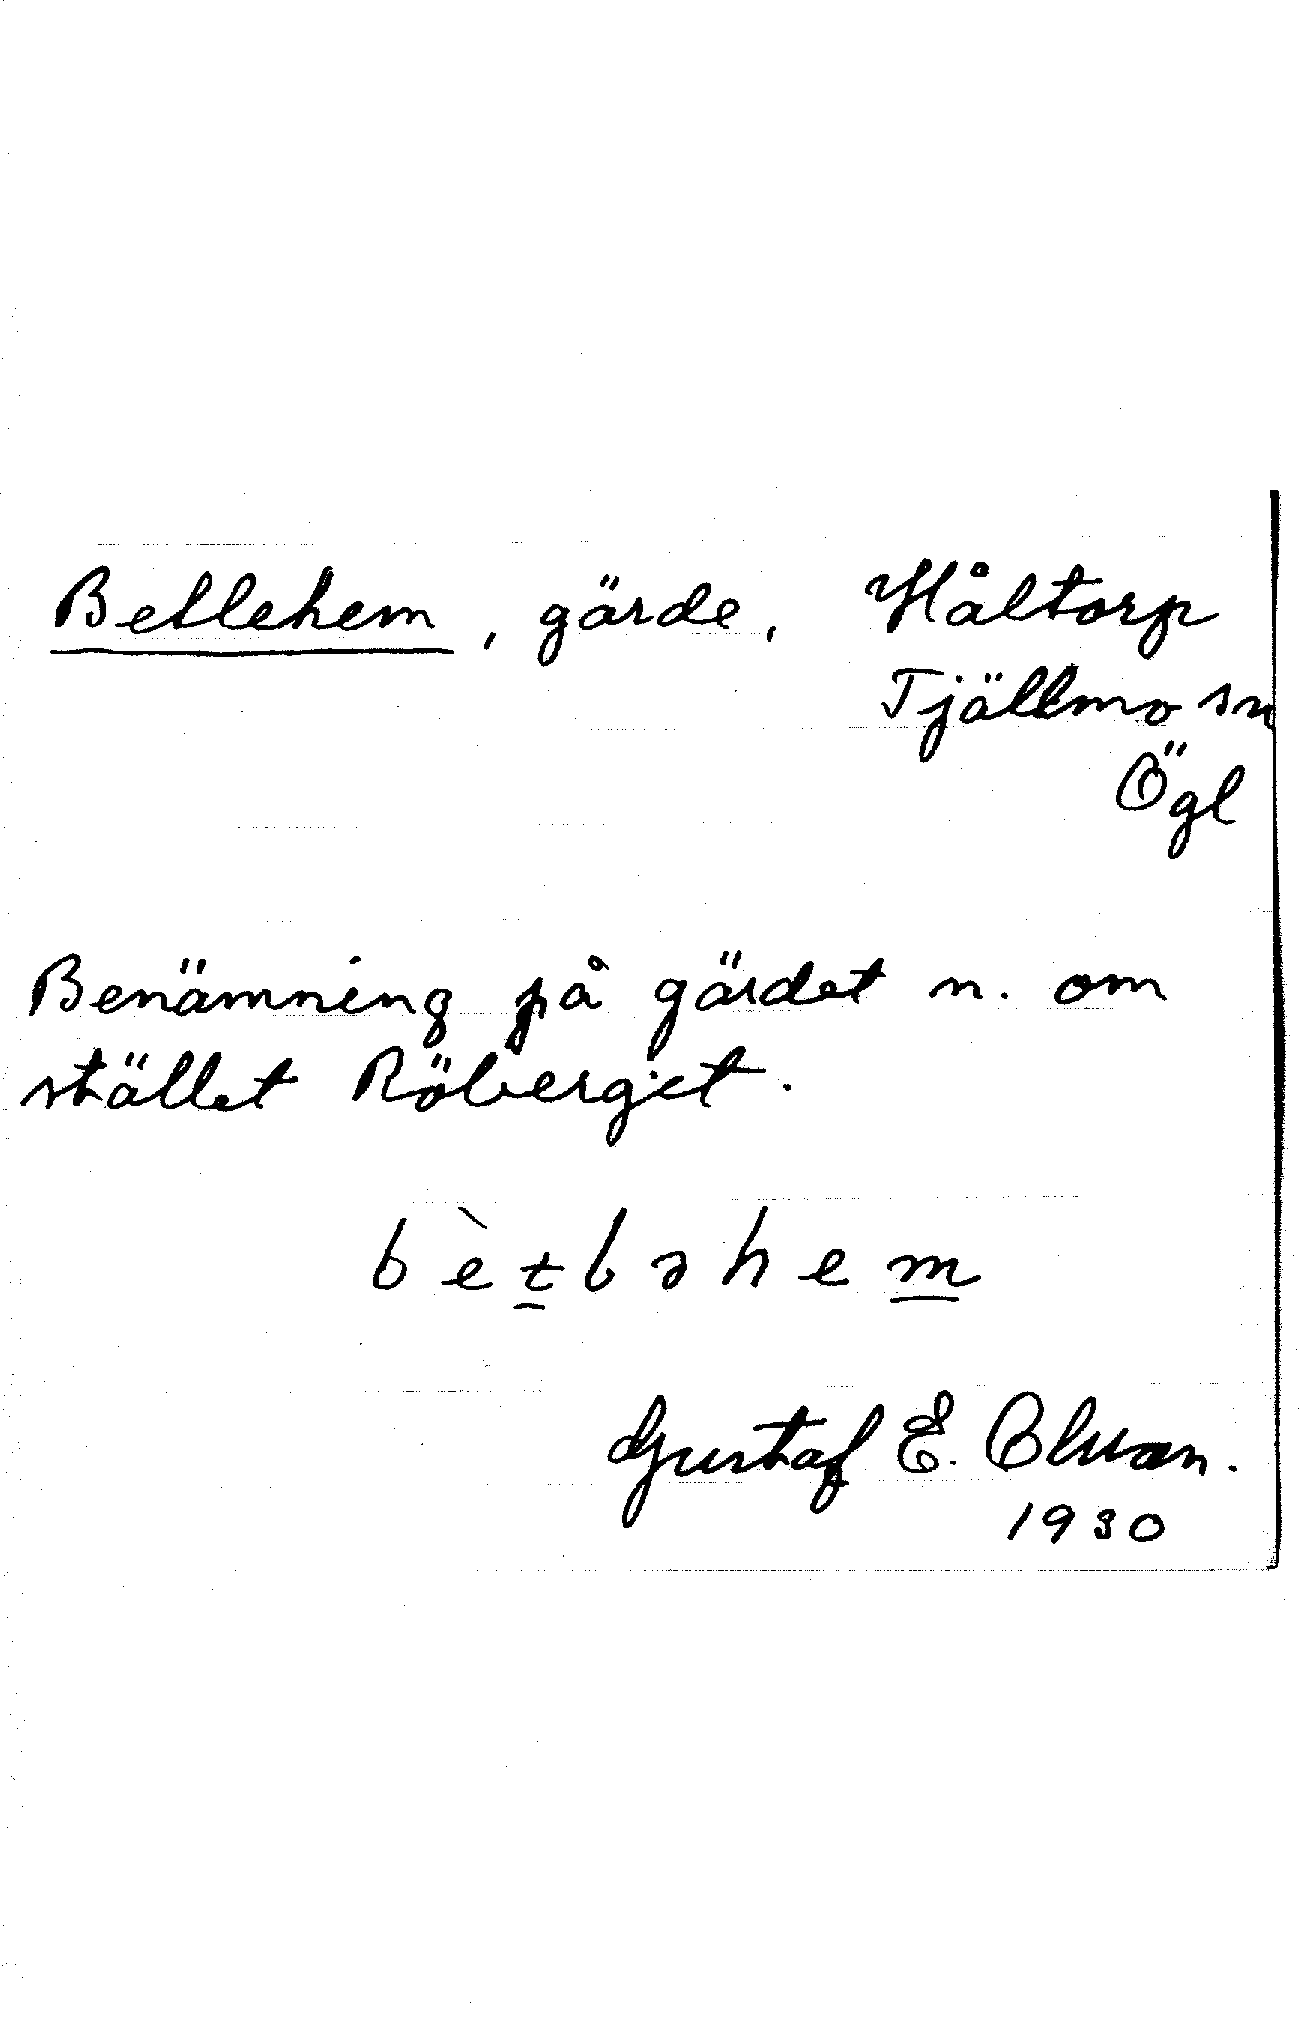 Betlehem, gärde, Håltorp
Tjällmo sn
Ögl
Benämning på gärdet n. om
stället Röberget.
bètləhem
Gustaf E.
1930